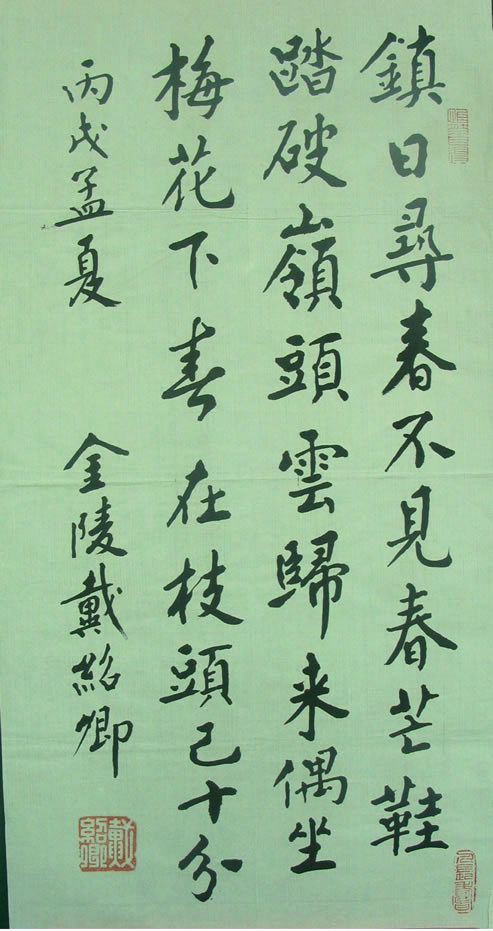 鎮日尋春不見春芒鞋
踏破嶺頭雲歸来偶坐
梅花下春在枝頭已十分
丙戌孟夏 金陵戴紹卿
戴紹卿